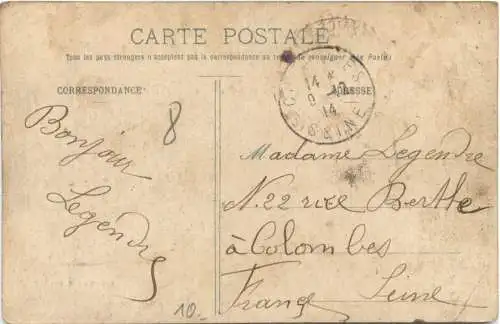 CARTE POSTALE
Tous les pays étrangers n'acceptent pas la correspondance au recto (se renseigner à la Poste)
CORRESPONDANCE
ADRESSE
14
9 -12
14
SEINE
8
Bonjour
Legendre
Madame Legendre
N. 22 rue Berthe
à Colombes
France Seine
10.-